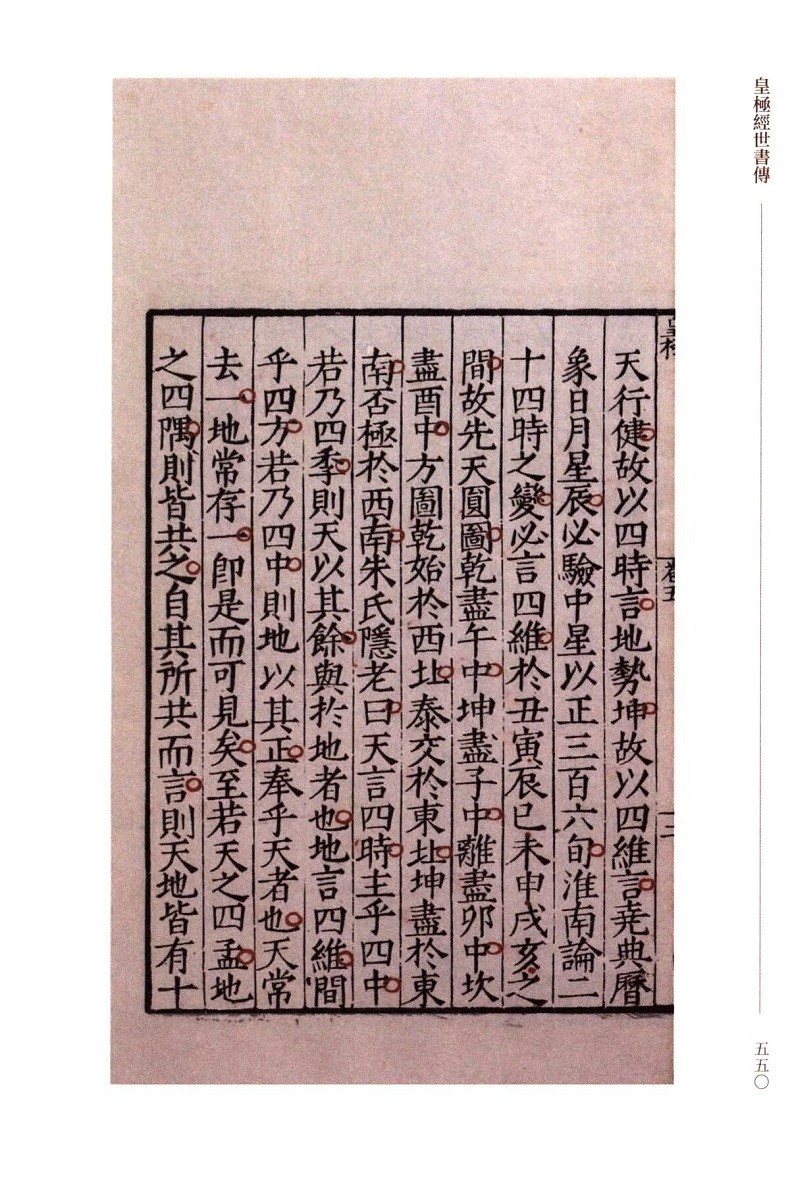 皇極經世書傳
五五〇
皇極
卷五
三
天行健故以四時言地勢坤故以四維言堯典曆
象日月星辰必驗中星以正三百六旬淮南論二
十四時之變必言四維於丑寅辰巳未申戌亥之
間故先天圓圖乾盡午中坤盡子中離盡卯中坎
盡酉中方圖乾始於西北泰交於東北坤盡於東
南否極於西南朱氏隱老曰天言四時主乎四中
若乃四季則天以其餘與於地者也地言四維間
乎四方若乃四中則地以其正奉乎天者也天常
去一地常存一即是而可見矣至若天之四孟地
之四隅則皆共之自其所共而言則天地皆有十